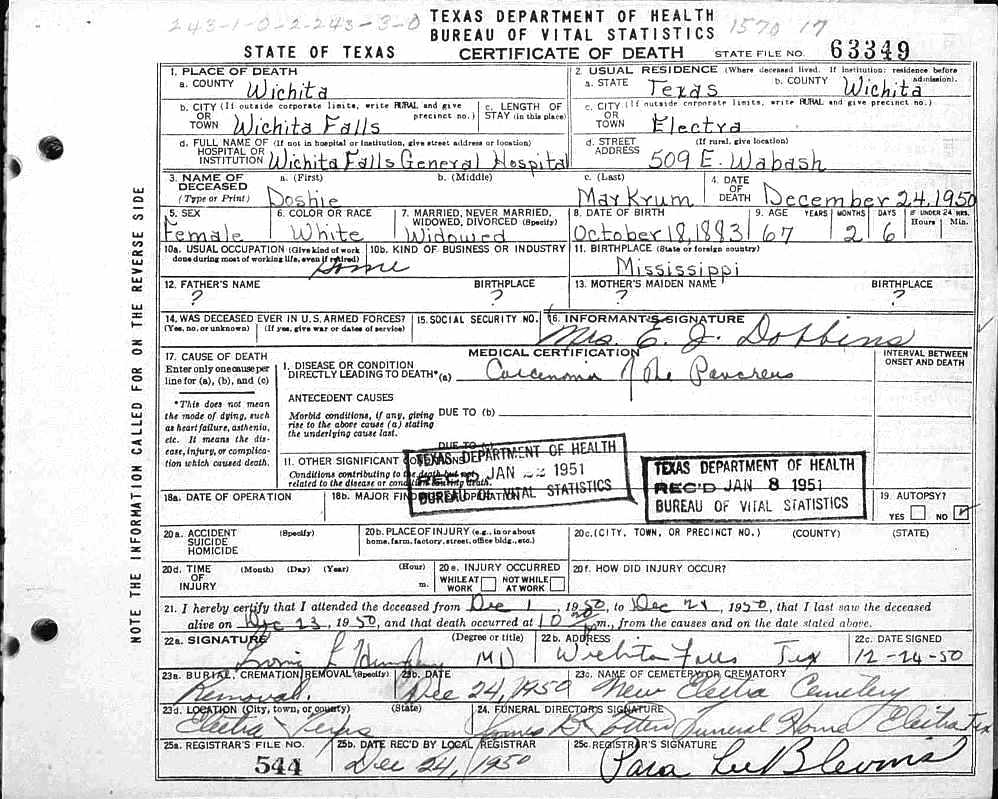 243-1-0-2-243-3-0
TEXAS DEPARTMENT OF HEALTH
1570 17
BUREAU OF VITAL STATISTICS
STATE OF TEXAS CERTIFICATE OF DEATH STATE FILE NO. 63349
NOTE THE INFORMATION CALLED FOR ON THE REVERSE SIDE
1. PLACE OF DEATH
a. COUNTY Wichita
2. USUAL RESIDENCE (Where deceased lived. If institution: residence before admission).
a. STATE Texas b. COUNTY Wichita
b. CITY (If outside corporate limits, write RURAL and give precinct no.)
OR
TOWN Wichita Falls
c. LENGTH OF STAY (in this place)
c. CITY (If outside corporate limits, write RURAL and give precinct no.)
OR
TOWN Electra
d. FULL NAME OF (If not in hospital or institution, give street address or location)
HOSPITAL OR
INSTITUTION Wichita Falls General Hospital
d. STREET ADDRESS (If rural, give location)
509 E. Wabash
3. NAME OF DECEASED (Type or Print)
a. (First) b. (Middle) c. (Last)
Doshie Mary Krum
4. DATE OF DEATH December 24, 1950
5. SEX
Female
6. COLOR OR RACE
White
7. MARRIED, NEVER MARRIED, WIDOWED, DIVORCED (Specify)
Widowed
8. DATE OF BIRTH
October 18, 1883
9. AGE YEARS MONTHS DAYS IF UNDER 24 HRS. Hours Min.
67 2 6
10a. USUAL OCCUPATION (Give kind of work done during most of working life, even if retired)
Home
10b. KIND OF BUSINESS OR INDUSTRY
11. BIRTHPLACE (State or foreign country)
Mississippi
12. FATHER'S NAME BIRTHPLACE
? ?
13. MOTHER'S MAIDEN NAME BIRTHPLACE
? ?
14. WAS DECEASED EVER IN U.S. ARMED FORCES?
(Yes, no, or unknown) (If yes, give war or dates of service)
15. SOCIAL SECURITY NO.
16. INFORMANT'S SIGNATURE
Mrs. E. J. Dobbins
17. CAUSE OF DEATH
Enter only one cause per line for (a), (b), and (c)
*This does not mean the mode of dying, such as heart failure, asthenia, etc. It means the disease, injury, or complication which caused death.
MEDICAL CERTIFICATION
INTERVAL BETWEEN ONSET AND DEATH
I. DISEASE OR CONDITION
DIRECTLY LEADING TO DEATH*(a) Carcinoma of the Pancreas
ANTECEDENT CAUSES
Morbid conditions, if any, giving rise to the above cause (a) stating the underlying cause last.
DUE TO (b)
DUE TO (c)
II. OTHER SIGNIFICANT CONDITIONS
Conditions contributing to the death but not related to the disease or condition causing death.
TEXAS DEPARTMENT OF HEALTH
REC'D JAN 1951
BUREAU OF VITAL STATISTICS
TEXAS DEPARTMENT OF HEALTH
REC'D JAN 8 1951
BUREAU OF VITAL STATISTICS
18a. DATE OF OPERATION
18b. MAJOR FINDINGS OF OPERATION
19. AUTOPSY?
YES NO
20a. ACCIDENT (Specify)
SUICIDE
HOMICIDE
20b. PLACE OF INJURY (e.g., in or about home, farm, factory, street, office bldg., etc.)
20c. (CITY, TOWN, OR PRECINCT NO.) (COUNTY) (STATE)
20d. TIME OF INJURY (Month) (Day) (Year) (Hour) m.
20e. INJURY OCCURRED
WHILE AT WORK NOT WHILE AT WORK
20f. HOW DID INJURY OCCUR?
21. I hereby certify that I attended the deceased from Dec 1, 1950, to Dec 24, 1950, that I last saw the deceased
alive on Dec 23, 1950, and that death occurred at m., from the causes and on the date stated above.
22a. SIGNATURE (Degree or title)
MD
22b. ADDRESS
Wichita Falls Tex
22c. DATE SIGNED
12-24-50
23a. BURIAL, CREMATION, REMOVAL (Specify)
Removal.
23b. DATE
Dec 24, 1950
23c. NAME OF CEMETERY OR CREMATORY
New Electra Cemetery
23d. LOCATION (City, town, or county) (State)
Electra Texas
24. FUNERAL DIRECTOR'S SIGNATURE
Totten Funeral Home Electra Tex
25a. REGISTRAR'S FILE NO.
544
25b. DATE REC'D BY LOCAL REGISTRAR
Dec 24, 1950
25c. REGISTRAR'S SIGNATURE
Para Lee Blevins